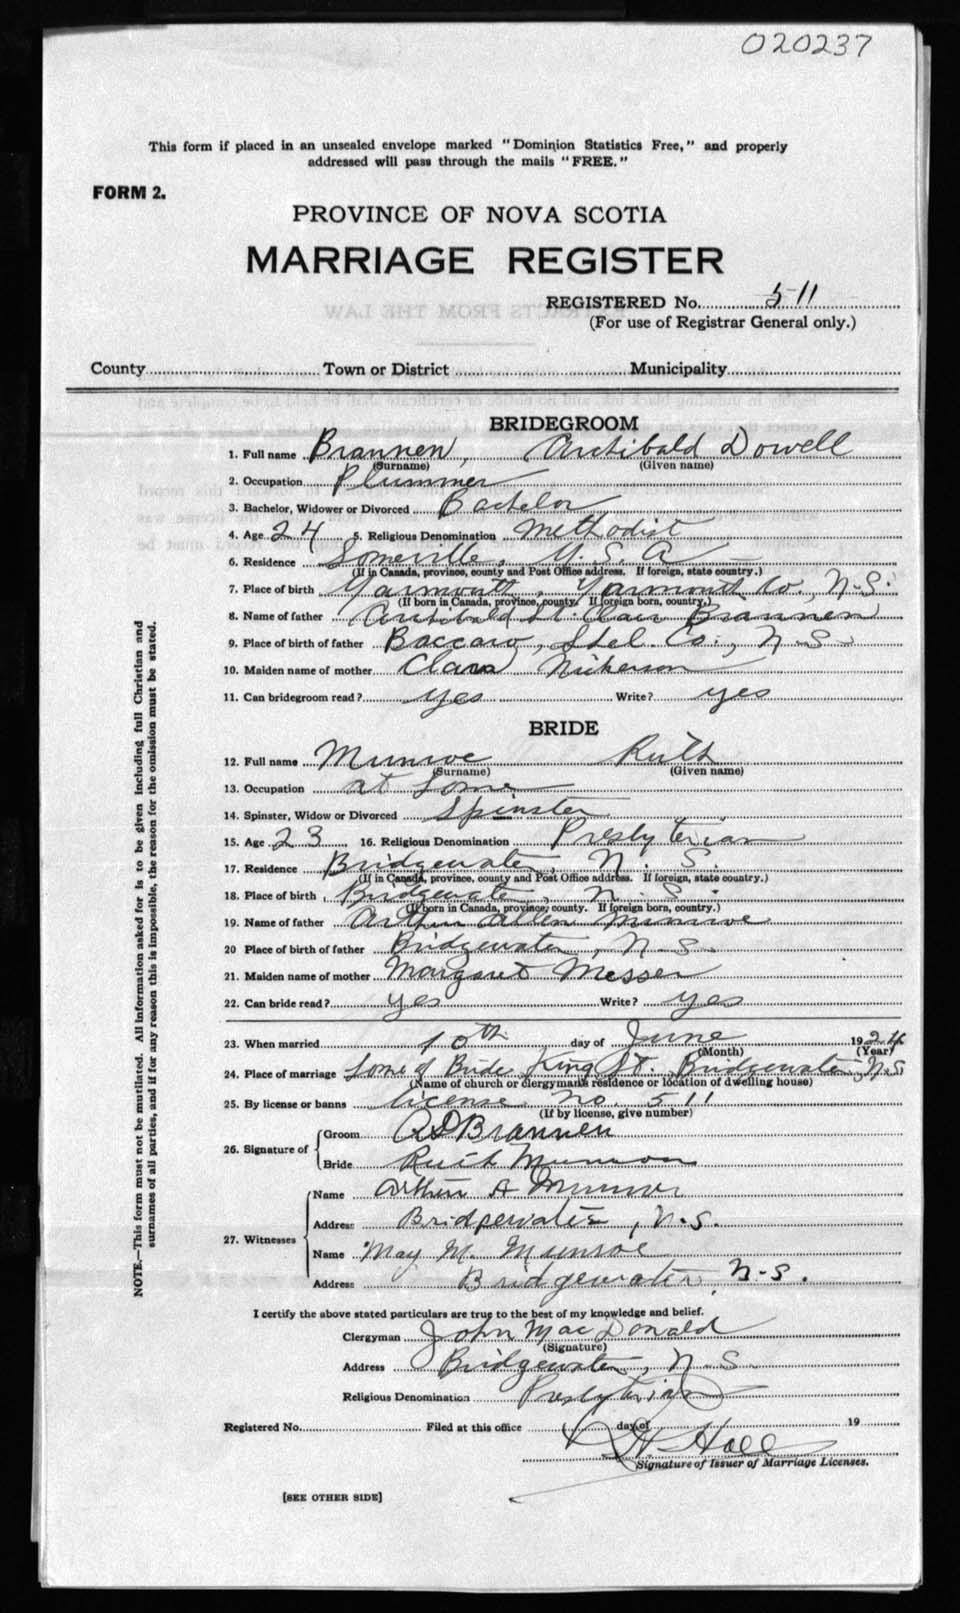 020237
This form if placed in an unsealed envelope marked "Dominion Statistics Free," and properly
addressed will pass through the mails "FREE."
FORM 2.
PROVINCE OF NOVA SCOTIA
MARRIAGE REGISTER
REGISTERED No. 511
(For use of Registrar General only.)
County Town or District Municipality
BRIDEGROOM
1. Full name Brannen, Archibald Dowell
(Surname) (Given name)
2. Occupation Plummer
3. Bachelor, Widower or Divorced Bachelor
4. Age 24 5. Religious Denomination Methodist
6. Residence Somerville, U.S.A
(If in Canada, province, county and Post Office address. If foreign, state country.)
7. Place of birth Yarmouth, Yarmouth Co., N.S.
(If born in Canada, province, county. If foreign born, country.)
8. Name of father Archibald St. Clair Brannen
9. Place of birth of father Baccaro, Shel. Co., N.S.
10. Maiden name of mother Clara Nickerson
11. Can bridegroom read? yes Write? yes
BRIDE
12. Full name Munroe Ruth
(Surname) (Given name)
13. Occupation at Home
14. Spinster, Widow or Divorced Spinster
15. Age 23 16. Religious Denomination Presbyterian
17. Residence Bridgewater, N.S.
(If in Canada, province, county and Post Office address. If foreign, state country.)
18. Place of birth Bridgewater, N.S.
(If born in Canada, province, county. If foreign born, country.)
19. Name of father Arthur Allen Munroe
20 Place of birth of father Bridgewater, N.S.
21. Maiden name of mother Margaret Messer
22. Can bride read? yes Write? yes
23. When married 10th day of June 1924
(Month) (Year)
24. Place of marriage Home of Bride King St. Bridgewater, N.S
(Name of church or clergymans residence or location of dwelling house)
25. By license or banns license no. 511
(If by license, give number)
26. Signature of Groom A D Brannen
Bride Ruth Munroe
27. Witnesses Name Arthur A Munroe
Address Bridgewater, N.S.
Name May M. Munroe
Address Bridgewater, N-S.
I certify the above stated particulars are true to the best of my knowledge and belief.
Clergyman John MacDonald
(Signature)
Address Bridgewater, N.S.
Religious Denomination Presbyterian
Registered No. Filed at this office day of 19
H. Hall
Signature of Issuer of Marriage Licenses.
[SEE OTHER SIDE]
NOTE.—This form must not be mutilated. All information asked for is to be given including full Christian and
surnames of all parties, and if for any reason this is impossible, the reason for the omission must be stated.